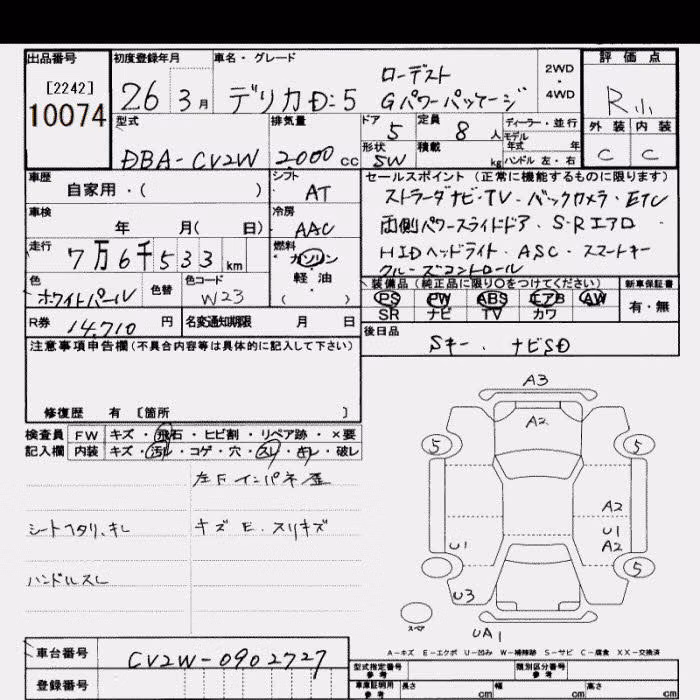 出品番号 初度登録年月 車名・グレード 評価点
[2242]
10074
26 3月 デリカD:5 ローデスト
Gパワーパッケージ
2WD
・
4WD
R小
型式 排気量 ドア 定員 ディーラー・並行 外装 内装
DBA-CV2W 2000cc 5 8人 モデル年式 年
形状 積載 SW kg ハンドル 左・右 C C
車歴 シフト セールスポイント(正常に機能するものに限ります)
自家用・( ) AT
ストラーダナビ・TV・バックカメラ・ETC
車検 冷房
年 月( 日) AAC
両側パワースライドドア・S・Rエアロ
走行 燃料
7万6千533km ガソリン
HIDヘッドライト・ASC・スマートキー
クルーズコントロール
色 色替 色コード 軽油
ホワイトパール W23 ( ・ )
装備品(純正品に限り○をつけてください) 新車保証書
PS PW ABS エアB AW 有・無
SR ナビ TV カワ
R券 14,710円 名変通知期限 月 日
後日品
Sキー、ナビSD
注意事項申告欄(不具合内容等は具体的に記入して下さい)
修復歴 有 [箇所 ]
検査員 FW キズ・飛石・ヒビ割・リペア跡・×要
記入欄 内装 キズ・汚レ・コゲ・穴・スレ・キレ・破レ
左Fインパネ歪
シートヘタリ、キレ キズE、スリキズ
ハンドルスレ
A3
A2
5 5
A2
U1 U1
A2
5
U3
スペア
UA1
A-キズ E-エクボ U-凹み W-補修跡 S-サビ C-腐食 XX-交換済
車台番号 CV2W-0902727
型式指定番号 参考 類別区分番号 参考
登録番号
車庫証明用 参考 長さ cm 幅 cm 高さ cm